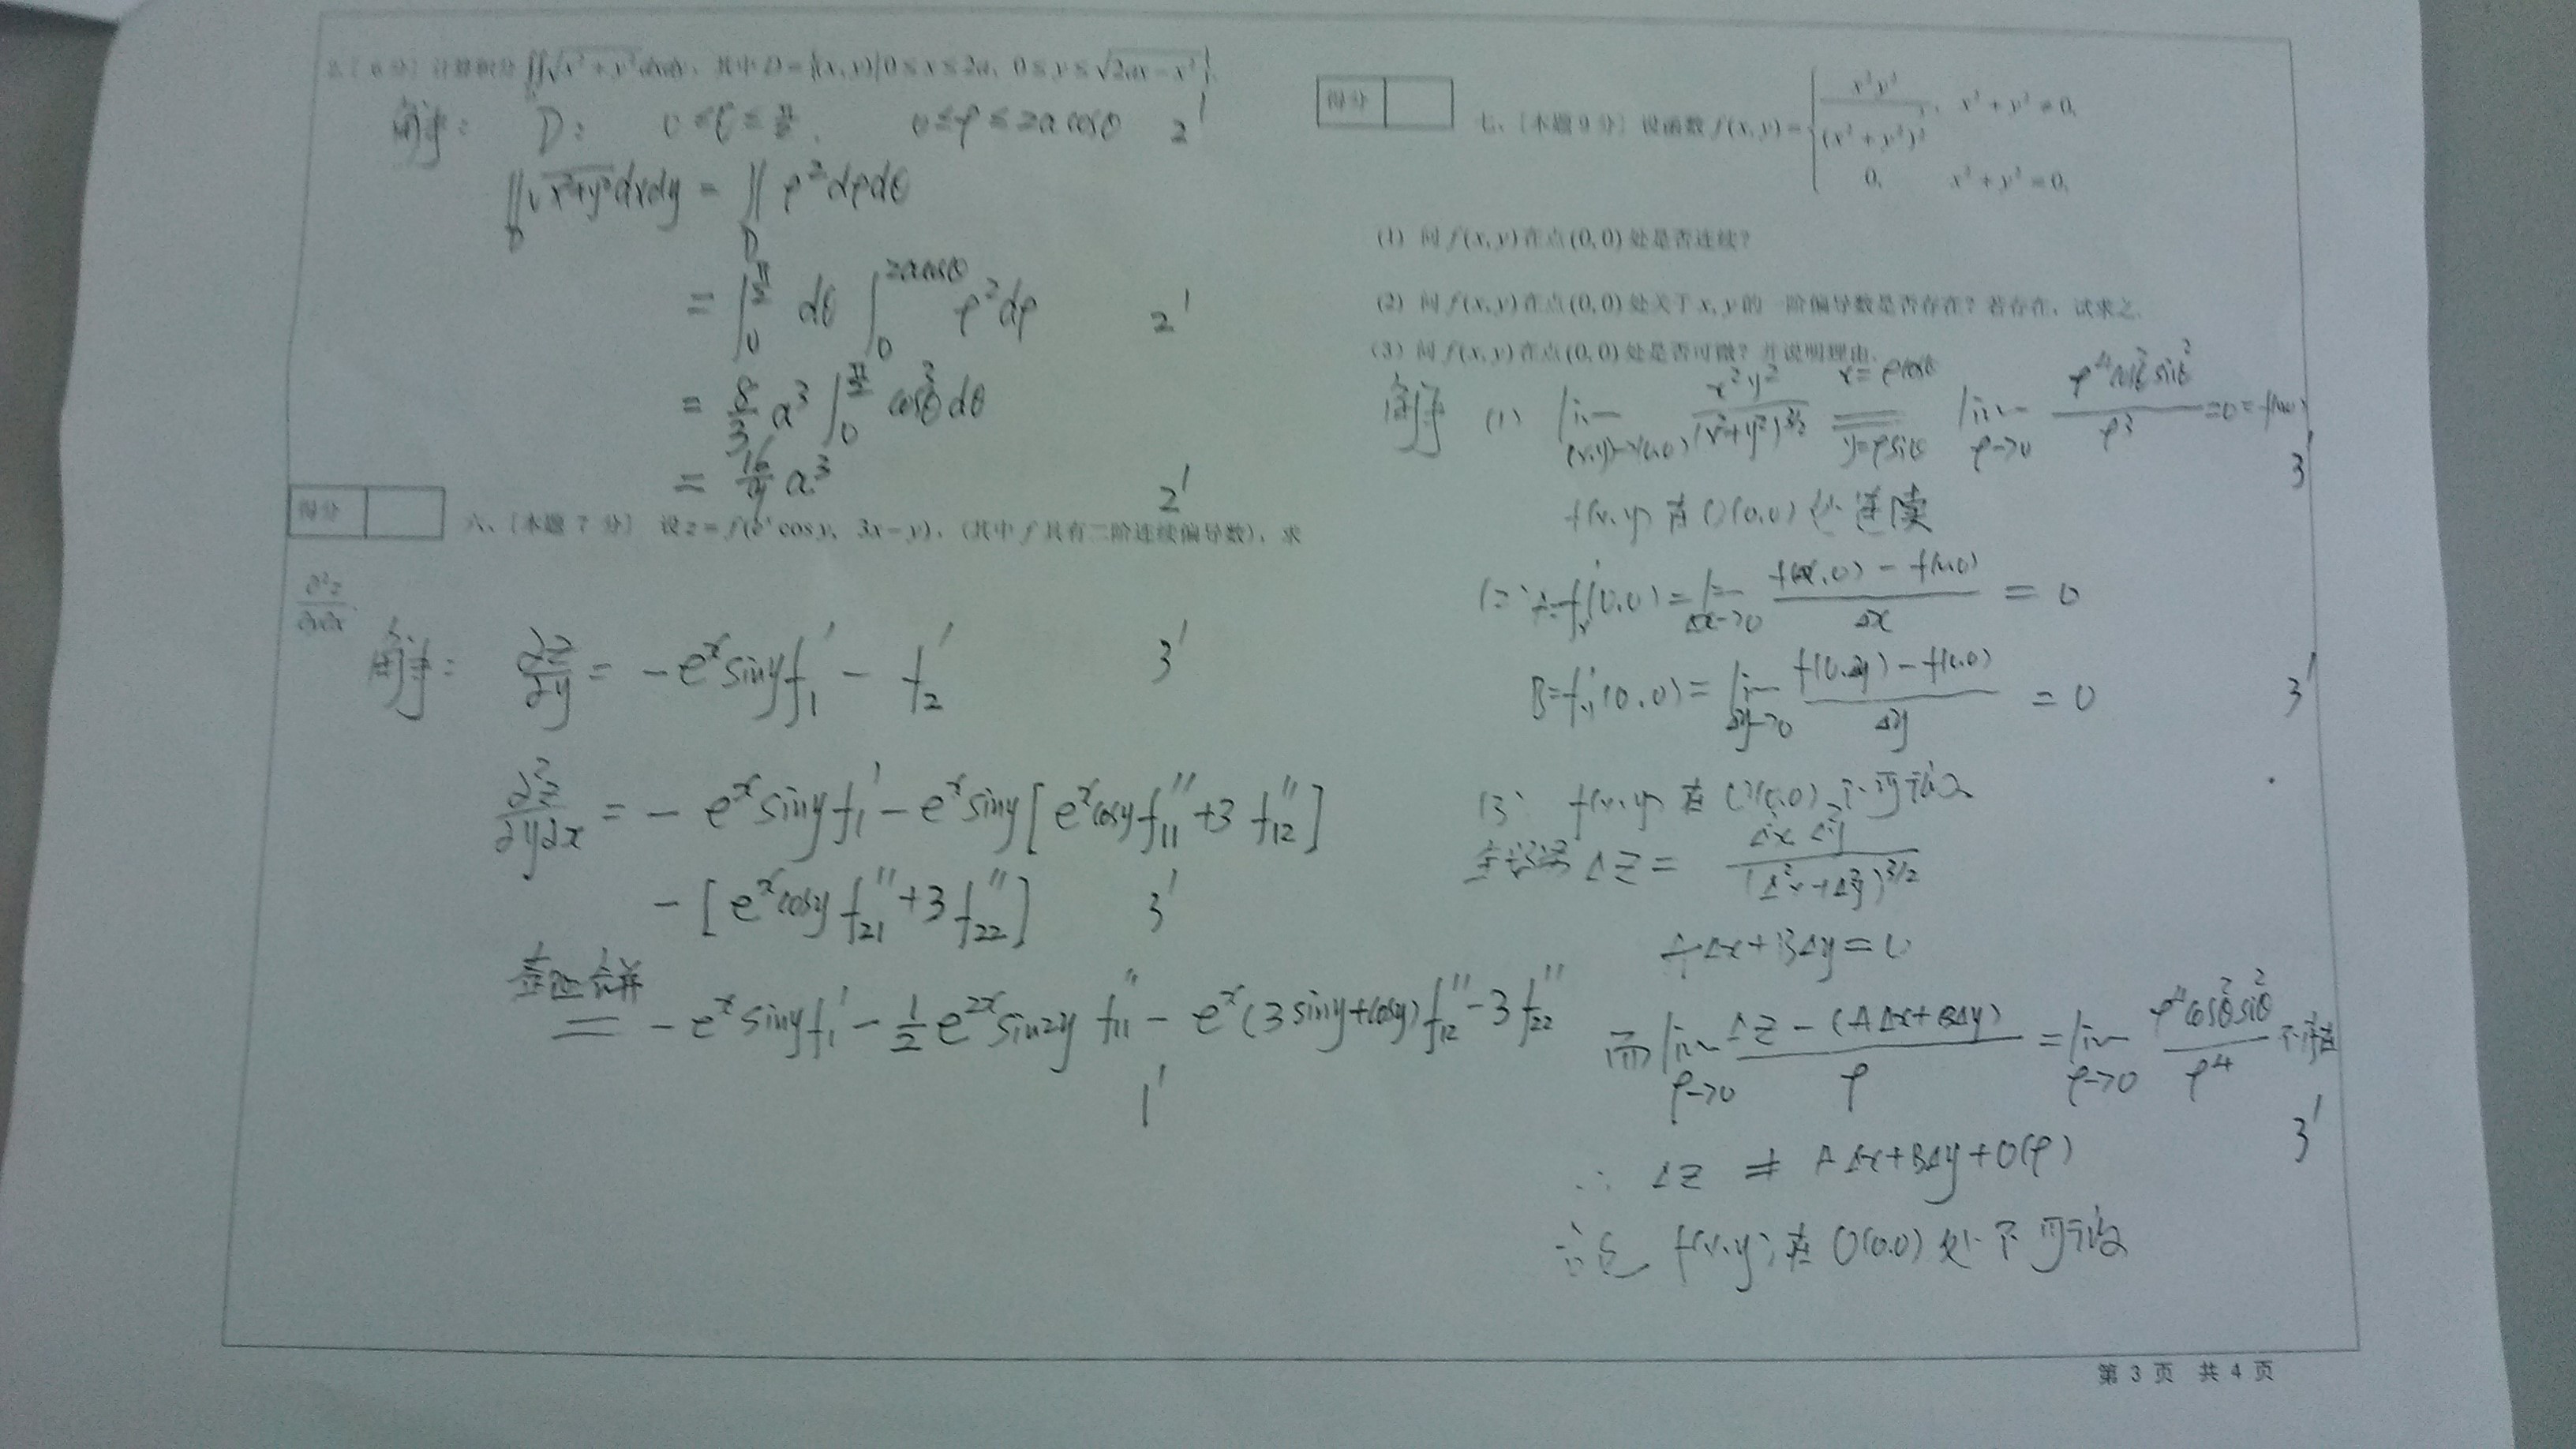 2.［6分］计算积分∬√(x²+y²)dxdy，其中 D={(x,y)|0≤x≤2a, 0≤y≤√(2ax-x²)}.
解： D： 0≤θ≤π/2. 0≤ρ≤2acosθ 2'
∬_D √(x²+y²) dxdy = ∬_D ρ²dρdθ
= ∫₀^(π/2) dθ ∫₀^(2acosθ) ρ²dρ 2'
= 8/3 a³ ∫₀^(π/2) cos³θdθ
= 16/9 a³ 2'
得分
六、［本题 7 分］ 设 z=f(eˣcosy, 3x-y)，(其中 f 具有二阶连续偏导数)，求
∂²z/∂y∂x.
解： ∂z/∂y = -eˣsiny f₁' - f₂' 3'
∂²z/∂y∂x = -eˣsiny f₁' - eˣsiny [eˣcosy f₁₁'' + 3 f₁₂'']
- [eˣcosy f₂₁'' + 3 f₂₂''] 3'
合并
= -eˣsiny f₁' - 1/2 e²ˣsin2y f₁₁'' - eˣ(3siny+cosy) f₁₂'' - 3 f₂₂''
1'
得分
七、［本题 9 分］设函数 f(x,y)={ x²y²/(x²+y²)^(3/2), x²+y²≠0,
0, x²+y²=0,
(1) 问 f(x,y) 在点 (0,0) 处是否连续？
(2) 问 f(x,y) 在点 (0,0) 处关于 x,y 的一阶偏导数是否存在？若存在，试求之.
(3) 问 f(x,y) 在点 (0,0) 处是否可微？并说明理由.
解 (1) lim_(x,y)→(0,0) x²y²/(x²+y²)^(3/2) = (x=ρcosθ, y=ρsinθ) lim_ρ→0 ρ⁴cos²θsin²θ/ρ³ = 0 = f(0,0)
3'
f(x,y) 在 O(0,0) 处连续
(2) A=fx'(0,0) = lim_Δx→0 (f(Δx,0) - f(0,0))/Δx = 0
B=fy'(0,0) = lim_Δy→0 (f(0,Δy) - f(0,0))/Δy = 0 3'
(3) f(x,y) 在 O(0,0) 不可微
ΔZ = Δ²x Δ²y/(Δ²x+Δ²y)^(3/2)
AΔx+BΔy=0
而 lim_ρ→0 (ΔZ - (AΔx+BΔy))/ρ = lim_ρ→0 ρ⁴cos²θsin²θ/ρ⁴ 不存在
3'
∴ ΔZ ≠ AΔx+BΔy+o(ρ)
f(x,y) 在 O(0,0) 处不可微
第 3 页 共 4 页